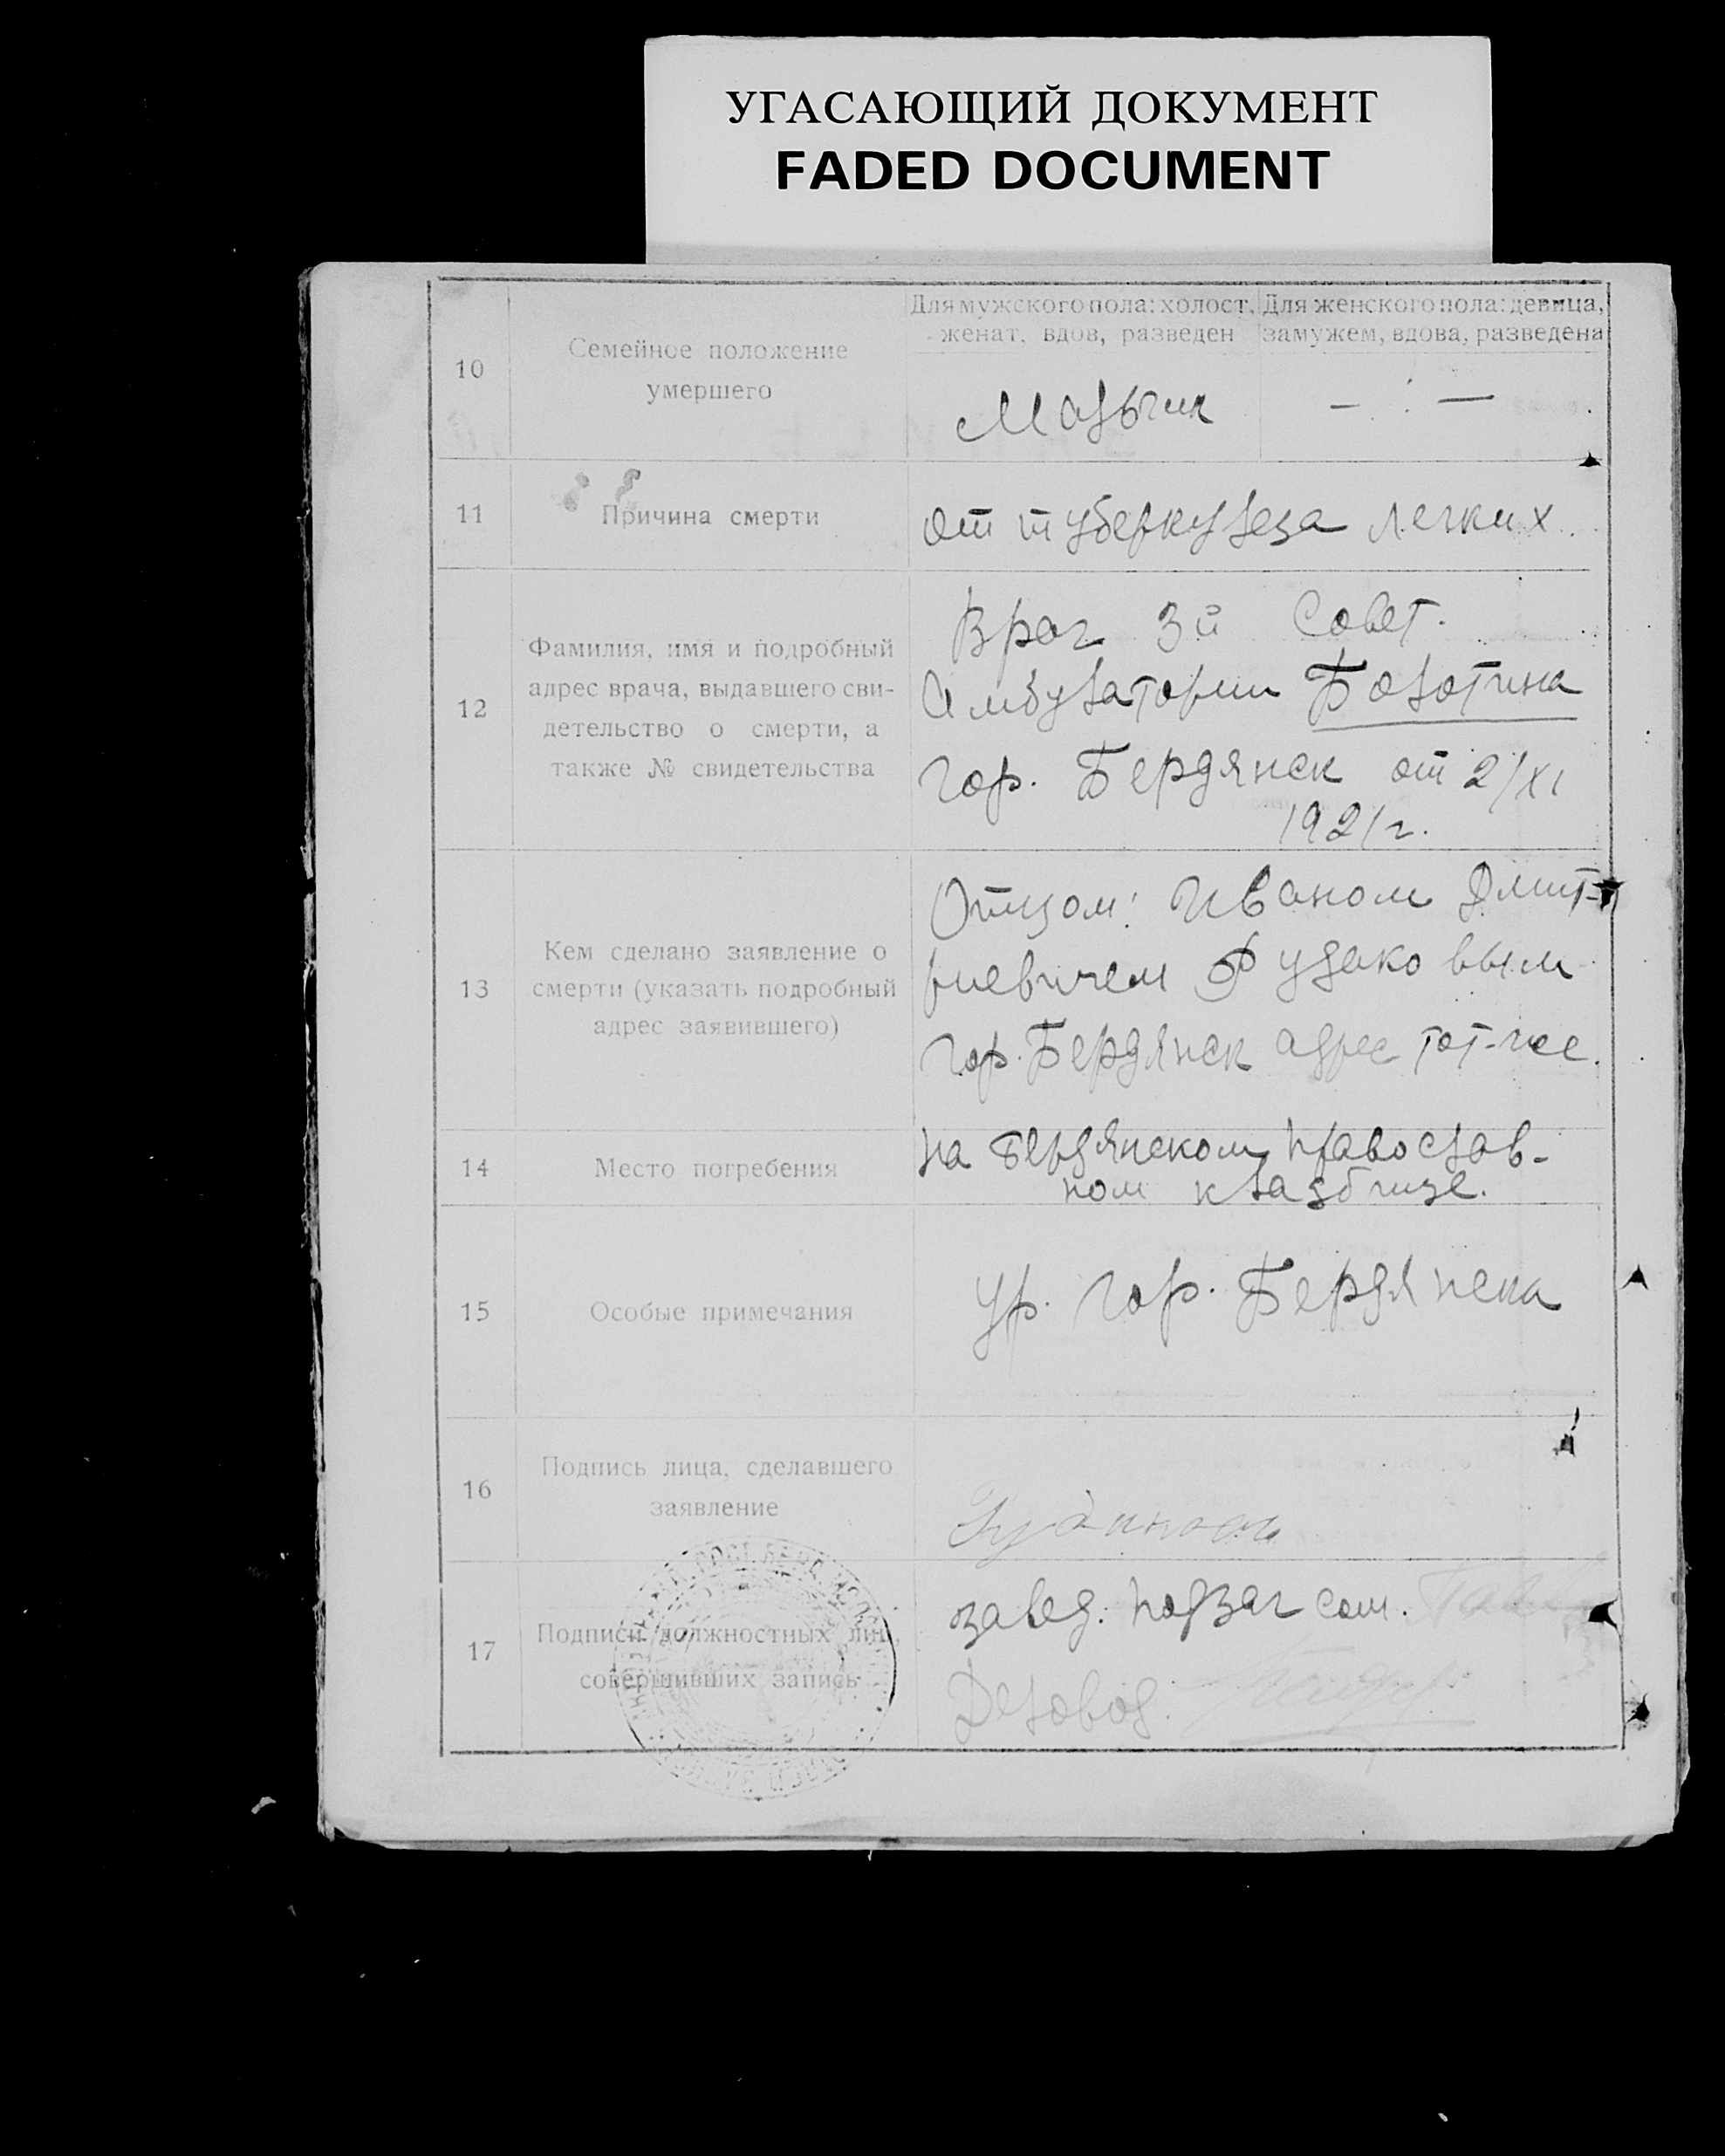 УГАСАЮЩИЙ ДОКУМЕНТ
FADED DOCUMENT
10
Семейное положение
умершего
Для мужского пола: холост,
женат, вдов, разведен
Для женского пола: девица,
замужем, вдова, разведена
Мальчик
— —
11
Причина смерти
от туберкулеза легких
12
Фамилия, имя и подробный
адрес врача, выдавшего сви-
детельство о смерти, а
также № свидетельства
Врач 3й Совет.
Амбулатории Болотина
гор. Бердянск от 2/XI
1921 г.
13
Кем сделано заявление о
смерти (указать подробный
адрес заявившего)
Отцом: Иваном Дмит-
риевичем
гор. Бердянск адрес тот-же.
14
Место погребения
на Бердянском православ-
ном кладбище.
15
Особые примечания
Ур. гор. Бердянска
16
Подпись лица, сделавшего
заявление
17
Подписи должностных лиц,
совершивших запись
завед. подзагсом.
Деловод.